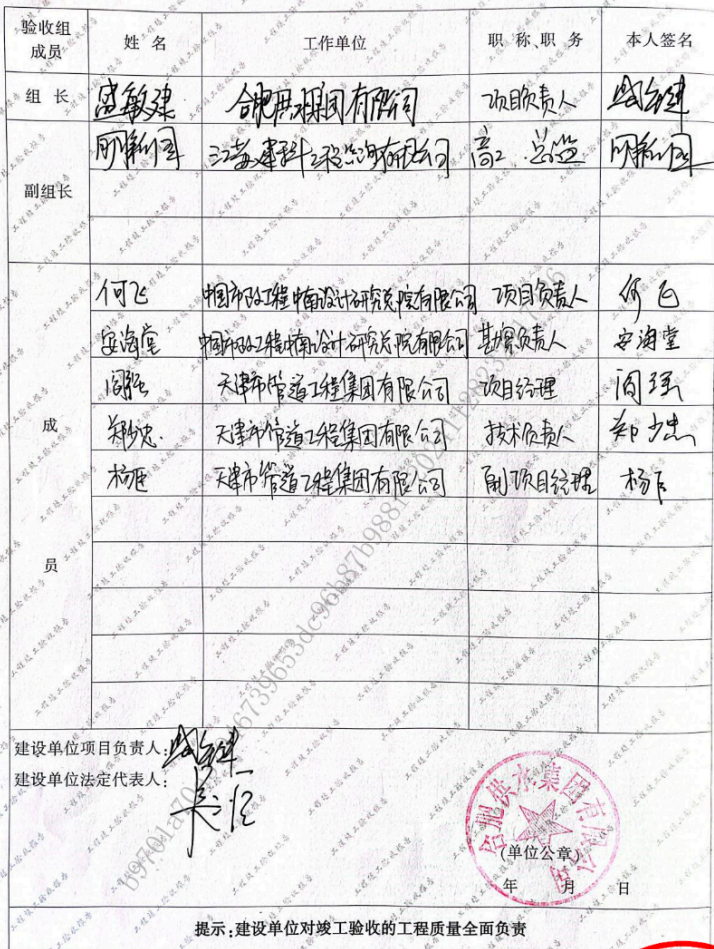 验收组成员 姓名 工作单位 职称、职务 本人签名
组长 盛敏建 合肥供水集团有限公司 项目负责人 盛敏建
副组长 江苏建科工程咨询有限公司 高工 总监
何飞 中国市政工程中南设计研究总院有限公司 项目负责人 何飞
安海堂 中国市政工程中南设计研究总院有限公司 勘察负责人 安海堂
成员 阎强 天津市管道工程集团有限公司 项目经理 阎强
郑少忠 天津市管道工程集团有限公司 技术负责人 郑少忠
杨臣 天津市管道工程集团有限公司 副项目经理
建设单位项目负责人：盛敏建
建设单位法定代表人：
合肥供水集团有限公司
（单位公章）
年 月 日
提示：建设单位对竣工验收的工程质量全面负责
工程竣工验收报告